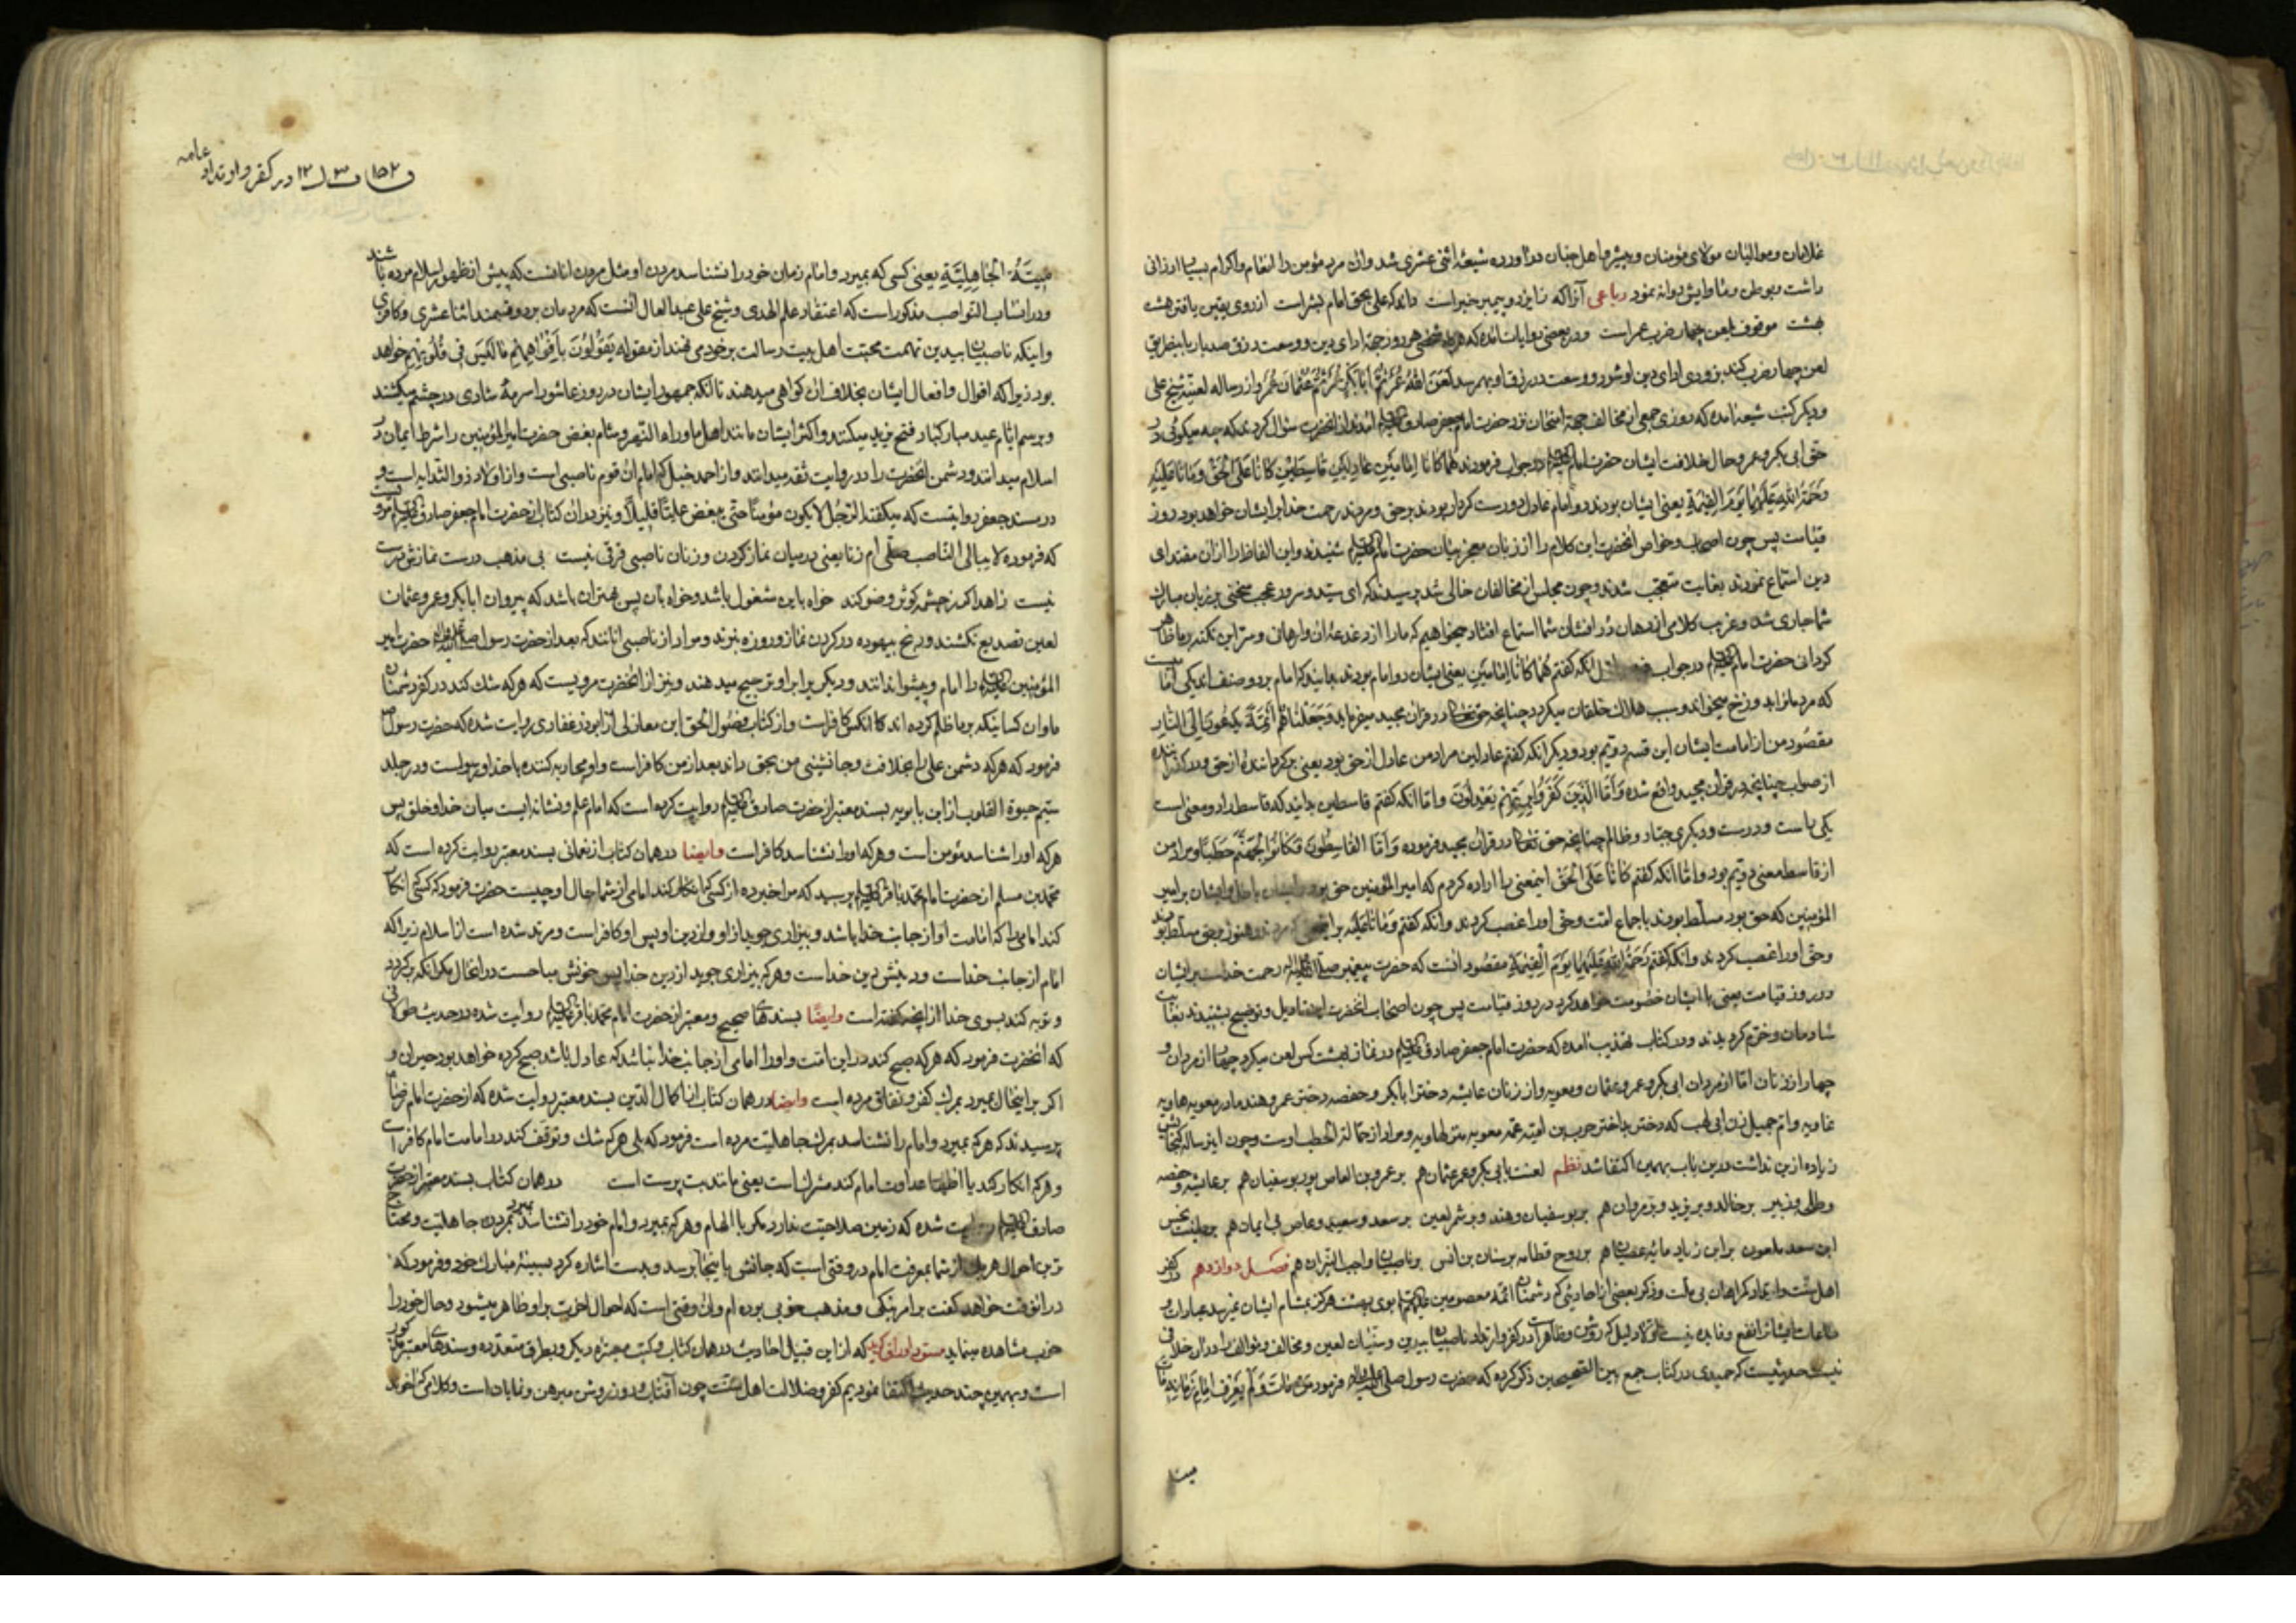 غلامان و موالیان مولای مؤمنان و پیشروِ اهل جنان در آورده شیعهٔ اثنی عشری شد و آن مرد مؤمن را انعام و اکرام بسیار ارزانی
داشت رباعی آنرا که ز ایزد و پیمبر خبر است داند که علی بحق امام بشر است از روی یقین یافتن هشت
بهشت موقوف بلعن چهار ضرب عمر است و در بعضی روایات آمده که هر شخصی هر روز جهة ادای دین و وسعت رزق صد بار باینطریق
لعن چهار ضرب کند بزودی ادای دین او شود و وسعت در رزق او بهم رسد لعن الله عمر ثم ابابکر ثم عثمان
و دیگر کتب شیعه آمده که روزی جمعی از مخالف جهة امتحان نزد حضرت امام جعفر صادق آمدند از آنحضرت سؤال کردند که چه میگوئی در
حق ابی بکر و عمر و حال خلافت ایشان حضرت امام در جواب فرمودند هما کانا امامین عادلین قاسطین کانا علی الحق و ماتا علیه
رحمة الله علیهما یوم القیمة یعنی ایشان بودند دو امام عادل درست کردار بودند بر حق و مردند رحمت خدا بر ایشان خواهد بود روز
قیامت پس چون اصحاب و خواص آنحضرت این کلام را از زبان معجز بیان حضرت امام شنیدند و این الفاظ را از آن مقتدای
دین استماع نمودند بغایت متعجب شدند و چون مجلس از مخالفان خالی شد پرسیدند که ای سید و سرور عجب سخنی بر زبان مبارک
شما جاری شد و غریب کلامی از دهان دُر افشان شما استماع افتاد میخواهیم که ما را از دغدغهٔ آن وارهانی و سرّ این نکته بر ما ظاهر
گردانی حضرت امام در جواب آنکه گفتم هما کانا امامین یعنی ایشان دو امام بودند بدانید که امام بر دو صنف اند یکی امامیست
که مردمانرا بدوزخ میخواند و سبب هلاک خلقان میگردد چنانچه حق تعالی در قران مجید میفرماید و جعلناهم ائمة یدعون الی النار
مقصود من از امامت ایشان این قسم دویم بود و دیگر آنکه گفتم عادلین مراد من عادل از حق بود یعنی برگردانندهٔ از حق و
از صواب چنانچه در قران مجید واقع شده الذین کفروا بربهم یعدلون و اما آنکه گفتم قاسطین بدانید که قاسط را دو معنی است
یکی راست و درست و دیگری جبار و ظالم چنانچه حق تعالی در قران مجید فرموده و اما القاسطون فکانوا لجهنم حطبا و مراد من
از قاسط معنی دویم بود و اما آنکه گفتم کانا علی الحق اینمعنی را اراده کردم که امیر المؤمنین حق بود و ایشان بر امیر
المؤمنین که حق بود مسلط بودند باجماع امت و حق او را غصب کردند و آنکه گفتم و ماتا علیه هنوز بر حق مسلط بودند
و حق او را غصب کردند و آنکه گفتم رحمة الله علیهما یوم القیمة مقصود آنست که حضرت پیغمبر رحمت خداست بر ایشان
در روز قیامت یعنی با ایشان خصومت خواهد کرد در روز قیامت پس چون اصحاب آنحضرت این تاویل و توضیح بشنیدند بغایت
شادمان و خرّم گردیدند و در کتاب تهذیب آمده که حضرت امام جعفر صادق در نماز لعن میکرد چهار از مردان و
چهار از زنان اما از مردان ابی بکر و عمر و عثمان و معویه و از زنان عایشه دختر ابابکر و حفصه دختر عمر و هند مادر معویه هاویه
غاویه و ام جمیل زن ابی لهب و چون این رساله گنجایش
زیاده از این نداشت در این باب بهمین اکتفا شد نظم لعنت بابی بکر و عمر عثمان هم بر عمرو بن العاص پور بوسفیان هم بر عایشه و حفصه
و طلح و زبیر بر خالد و بر یزید و بر مروان هم بر بوسفیان و هند و بر شمر لعین بر سعد و سعید و عاص بی ایمان هم
ابن سعد ملعون بر ابن زیاد بر روح قطامه بر سنان بن انس بر ناصبیان واجب النیران هم فصل دوازدهم در کفر
اهل سنت و ذکر بعضی از احادیثی که دشمنان ائمه معصومین بوی بهشت هرگز بمشام ایشان نمیرسد
و فایده نیست در کفر و ارتداد ناصبیان بیدین و سنّیان لعین و مخالف و موالف را در آن خلافی
نیست حدیثیست که حمیدی در کتاب جمع بین الصحیحین ذکر کرده که حضرت رسول فرمود من مات و لم یعرف امام زمانه مات
میتة
ف ۱۵۲ در کفر و ارتداد عامه
میتة الجاهلیة یعنی کسی که بمیرد و امام زمان خود را نشناسد مردن او مثل مردن آنانست که پیش از ظهور اسلام مرده باشند
و در انساب النواصب مذکور است که اعتقاد علم الهدی و شیخ علی عبدالعال آنست که مردمان بر دو قسمند اثنا عشری و کافری
و اینکه ناصبیان بیدین تهمت محبت اهل بیت رسالت بر خود می بندند از مقوله یقولون بافواههم ما لیس فی قلوبهم خواهد
بود زیرا که اقوال و افعال ایشان بخلاف آن گواهی میدهند تا آنکه جمهور ایشان در روز عاشورا سرمهٔ شادی در چشم میکشند
و برسم ایام عید مبارکباد فتح یزید میکنند و اکثر ایشان مانند اهل ماوراء النهر و شام بغض حضرت امیر المؤمنین را شرط ایمان و
اسلام میدانند و دشمن آنحضرت را در روایت ثقه میدانند و از احمد حنبل که امام آن قوم ناصبی است و از اولاد ذوالثدیه است
در مسند جعفر روایتست که میگفته الرجل لا یکون مؤمنا حتی یبغض علیا قلیلا و نیز در آن کتاب از حضرت امام جعفر صادق مرویست
که فرموده لا یبالی الناصب صلی ام زنا یعنی در میان نماز کردن و زنا ناصبی فرقی نیست بی مذهب درست نمازش درست
نیست زاهد اگر ز چشمهٔ کوثر وضو کند خواه باین مشغول باشد و خواه بآن پس همتر آن باشد که پیروان ابابکر و عمر و عثمان
لعین تصدیع نکشند و رنج بیهوده در کردن نماز و روزه نبرند و مراد از ناصبی آنانند که بعد از حضرت رسول حضرت امیر
المؤمنین را امام و پیشوا ندانند و دیگریرا بر او ترجیح میدهند و نیز از آنحضرت مرویست که هر که شک کند در کفر دشمنان
ما و آن کسانیکه بر ما ظلم کرده اند کانکس کافر است و از کتاب ابن مغازلی از ابوذر غفاری روایت شده که حضرت رسول
فرمود که هر که دشمن علی خلافت و جانشینی من بحق داند بعد از من کافر است و او محاربه کننده با خدا و رسولست و در جلد
سیّم حیوة القلوب از ابن بابویه بسند معتبر از حضرت صادق روایت کرده است که امام علم و نشانه ایست میان خدا و خلق پس
هر که او را شناسد مؤمن است و هر که او را نشناسد کافر است و ایضا در همان کتاب از نعمانی بسند معتبر روایت کرده است که
محمد بن مسلم از حضرت امام محمد باقر پرسید که مرا خبر ده از کسی که انکار کند امامی از شما حال او چیست حضرت فرمود که کسی که انکار
کند امامی را که امامت او از جانب خدا باشد و بیزاری جوید از او و از دین او پس او کافر است و مرتد شده است از اسلام زیرا که
امام از جانب خداست و دینش دین خداست و هر که بیزاری جوید از دین خدا پس خونش مباحست در آنحال مگر آنکه برگردد
و توبه کند بسوی خدا از آنچه گفته است و ایضا بسندهای صحیح و معتبر از حضرت امام محمد باقر روایت شده در حدیث طولانی
که آنحضرت فرمود که هر که صبح کند در این امت و او را امامی از جانب خدا نباشد که عادل باشد صبح کرده خواهد بود حیران و
اگر بر اینحال بمیرد بمرگ کفر و نفاق مرده است و ایضا در همان کتاب از اکمال الدین بسند معتبر روایت شده که از حضرت امام رضا
پرسیدند که هر که بمیرد و امام را نشناسد بمرگ جاهلیت مرده است فرمود که بلی هر که شک و توقف کند در امامت امام کافر است
و هر که انکار کند یا اظهار عداوت امام کند مشرکست یعنی مانند بت پرست است در همان کتاب بسند معتبر از حضرت
صادق روایت شده که زمین صلاحیت ندارد مگر با امام و هر که بمیرد و امام خود را نشناسد بمیرد بمردن جاهلیت و محتاج
ترین احوال هر یک از شما بمعرفت امام در وقتی است که جانش باینجا برسد و بدست اشاره کرد بسینهٔ مبارک خود و فرمود که
در آنوقت خواهد گفت بر امر نیکی و مذهب خوبی بوده ام و آن وقتی است که احوال آخرت بر او ظاهر میشود و حال خود را
خوب مشاهده مینماید مسوّد اوراق گوید که از این قبیل احادیث در همان کتاب و کتب معتبره دیگر و بطرق متعدده و سندهای معتبر مذکور
است و بهمین چند حدیث اکتفا نمودیم کفر و ضلالت اهل سنت چون آفتاب روز روشن مبرهن و نمایان است و کلام